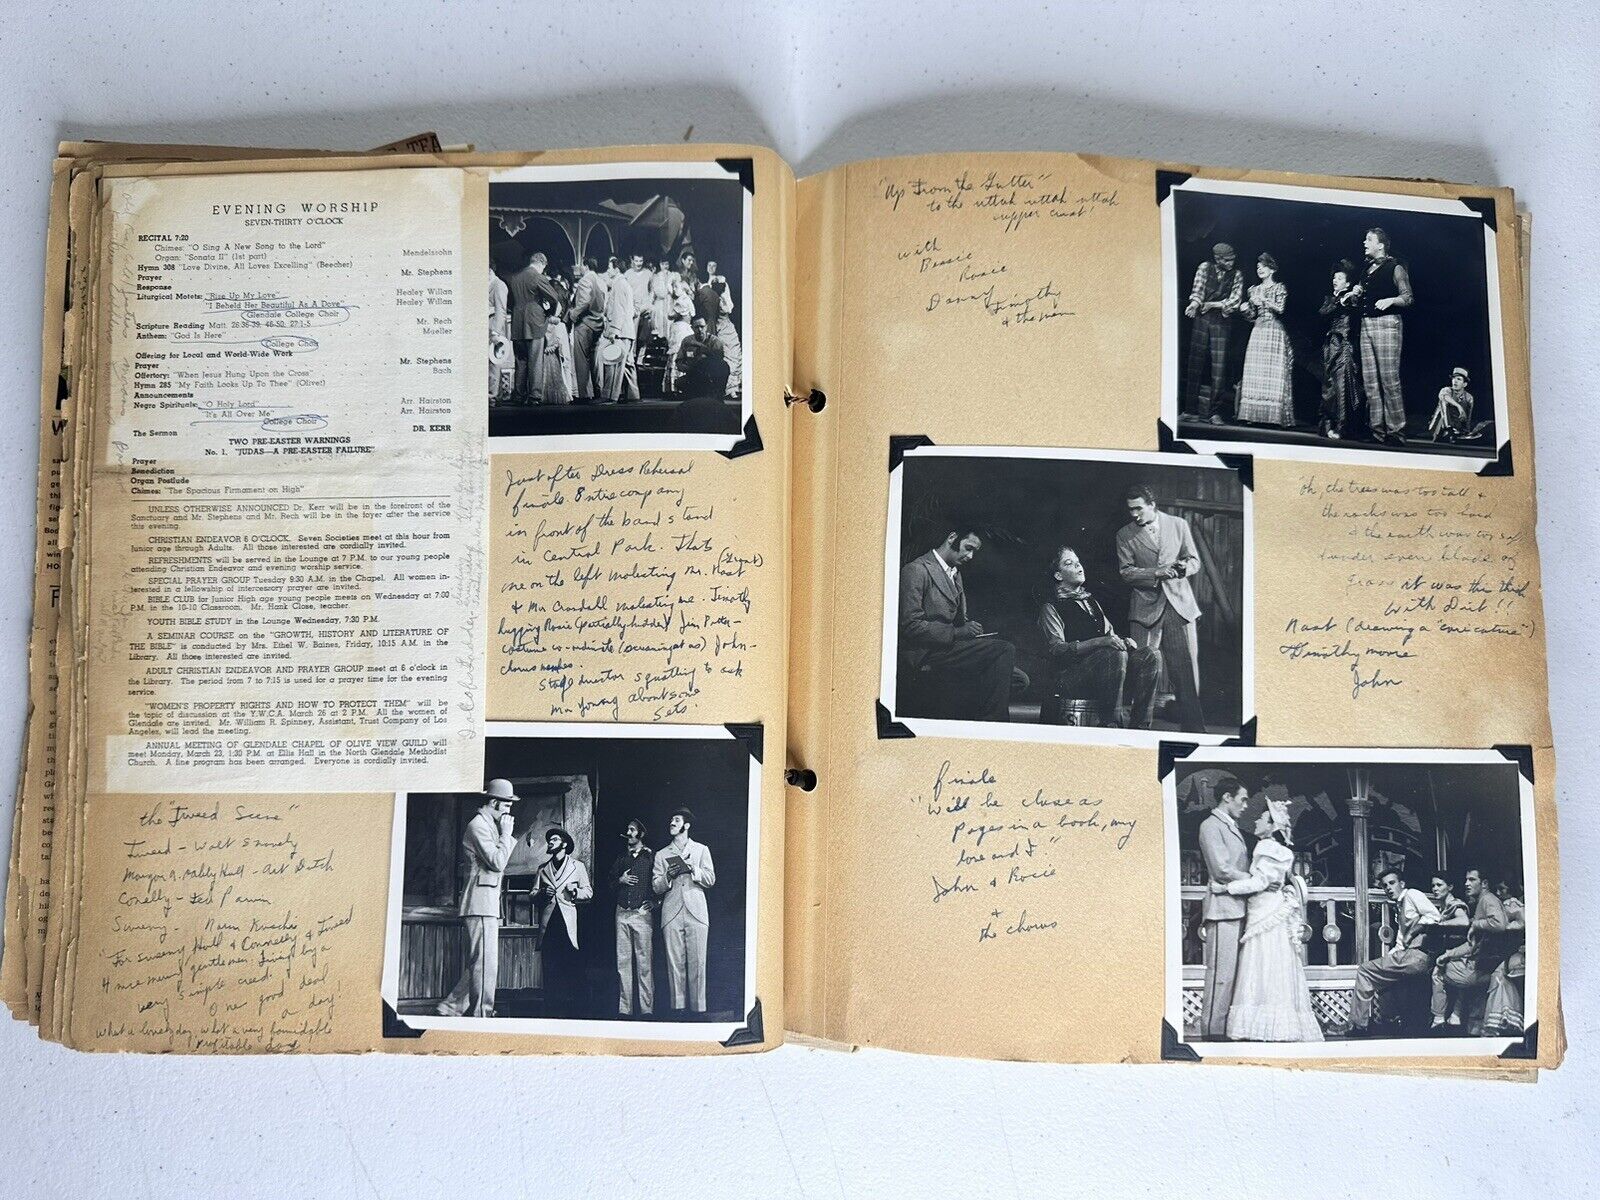 EVENING WORSHIP
SEVEN-THIRTY O'CLOCK
RECITAL 7:20
Chimes: "O Sing A New Song to the Lord"
Organ: "Sonata II" (1st part) Mendelssohn
Hymn 308 "Love Divine, All Loves Excelling" (Beecher)
Prayer Mr. Stephens
Response
Liturgical Motets: "Rise Up My Love" Healey Willan
"I Beheld Her Beautiful As A Dove" Healey Willan
Glendale College Choir
Scripture Reading Matt. 26:36-39, 46-50, 27:1-5 Mr. Rech
Anthem: "God Is Here" Mueller
College Choir
Offering for Local and World-Wide Work
Prayer Mr. Stephens
Offertory: "When Jesus Hung Upon the Cross" Bach
Hymn 285 "My Faith Looks Up To Thee" (Olivet)
Announcements
Negro Spirituals: "O Holy Lord" Arr. Hairston
"It's All Over Me" Arr. Hairston
College Choir
The Sermon DR. KERR
TWO PRE-EASTER WARNINGS
No. 1. "JUDAS—A PRE-EASTER FAILURE"
Prayer
Benediction
Organ Postlude
Chimes: "The Spacious Firmament on High"
UNLESS OTHERWISE ANNOUNCED Dr. Kerr will be in the forefront of the
Sanctuary and Mr. Stephens and Mr. Rech will be in the foyer after the service
this evening.
CHRISTIAN ENDEAVOR 6 O'CLOCK. Seven Societies meet at this hour from
Junior age through Adults. All those interested are cordially invited.
REFRESHMENTS will be served in the Lounge at 7 P.M. to our young people
attending Christian Endeavor and evening worship service.
SPECIAL PRAYER GROUP Tuesday 9:30 A.M. in the Chapel. All women in-
terested in a fellowship of intercessory prayer are invited.
BIBLE CLUB for Junior High age young people meets on Wednesday at 7:00
P.M. in the 10-10 Classroom. Mr. Hank Close, teacher.
YOUTH BIBLE STUDY in the Lounge Wednesday, 7:30 P.M.
A SEMINAR COURSE on the "GROWTH, HISTORY AND LITERATURE OF
THE BIBLE" is conducted by Mrs. Ethel W. Baines, Friday, 10:15 A.M. in the
Library. All those interested are invited.
ADULT CHRISTIAN ENDEAVOR AND PRAYER GROUP meet at 6 o'clock in
the Library. The period from 7 to 7:15 is used for a prayer time for the evening
service.
"WOMEN'S PROPERTY RIGHTS AND HOW TO PROTECT THEM" will be
the topic of discussion at the Y.W.C.A. March 26 at 2 P.M. All the women of
Glendale are invited. Mr. William R. Spinney, Assistant, Trust Company of Los
Angeles, will lead the meeting.
ANNUAL MEETING OF GLENDALE CHAPEL OF OLIVE VIEW GUILD will
meet Monday, March 23, 1:30 P.M. at Ellis Hall in the North Glendale Methodist
Church. A fine program has been arranged. Everyone is cordially invited.
the "Tweed Scene"
Tweed - Walt
Mayor Oakey Hall - Art Dutch
Conolly - Ted Parvin
Sweeny - Norm
"For Sweeny, Hall & Connelly & Tweed
4 more merry gentlemen. Lived by a
very simple creed.
One good deal
a day!
What a lovely day, what a very formidable
profitable day.
Just after Dress Rehersal
finale. Entire company
in front of the band stand
in Central Park. Thats
me on the left molesting Mr. Nast
(Zigat)
& Mr Crandall molesting me. Timothy
hugging Rosie (partially hidden) Jim Peter-
costume co-ordinate (screaming at us) John-
chorus
Stage director squatting to ask
Mr Young about some
sets.
"Up From the Gutter"
to the uttuh uttuh uttuh
upper crust!
with
Bessie
Rosie
Danny
Timothy
& the men
"oh, the trees was too tall &
the rocks was too hard
& the earth was too sof
under every blade of
grass it was thin thick
with Dirt!!
Nast (drawing a "caricature")
Timothy Moore
John
finale
"Will be close as
pages in a book, my
love and I"
John & Rosie
&
the chorus
TEA